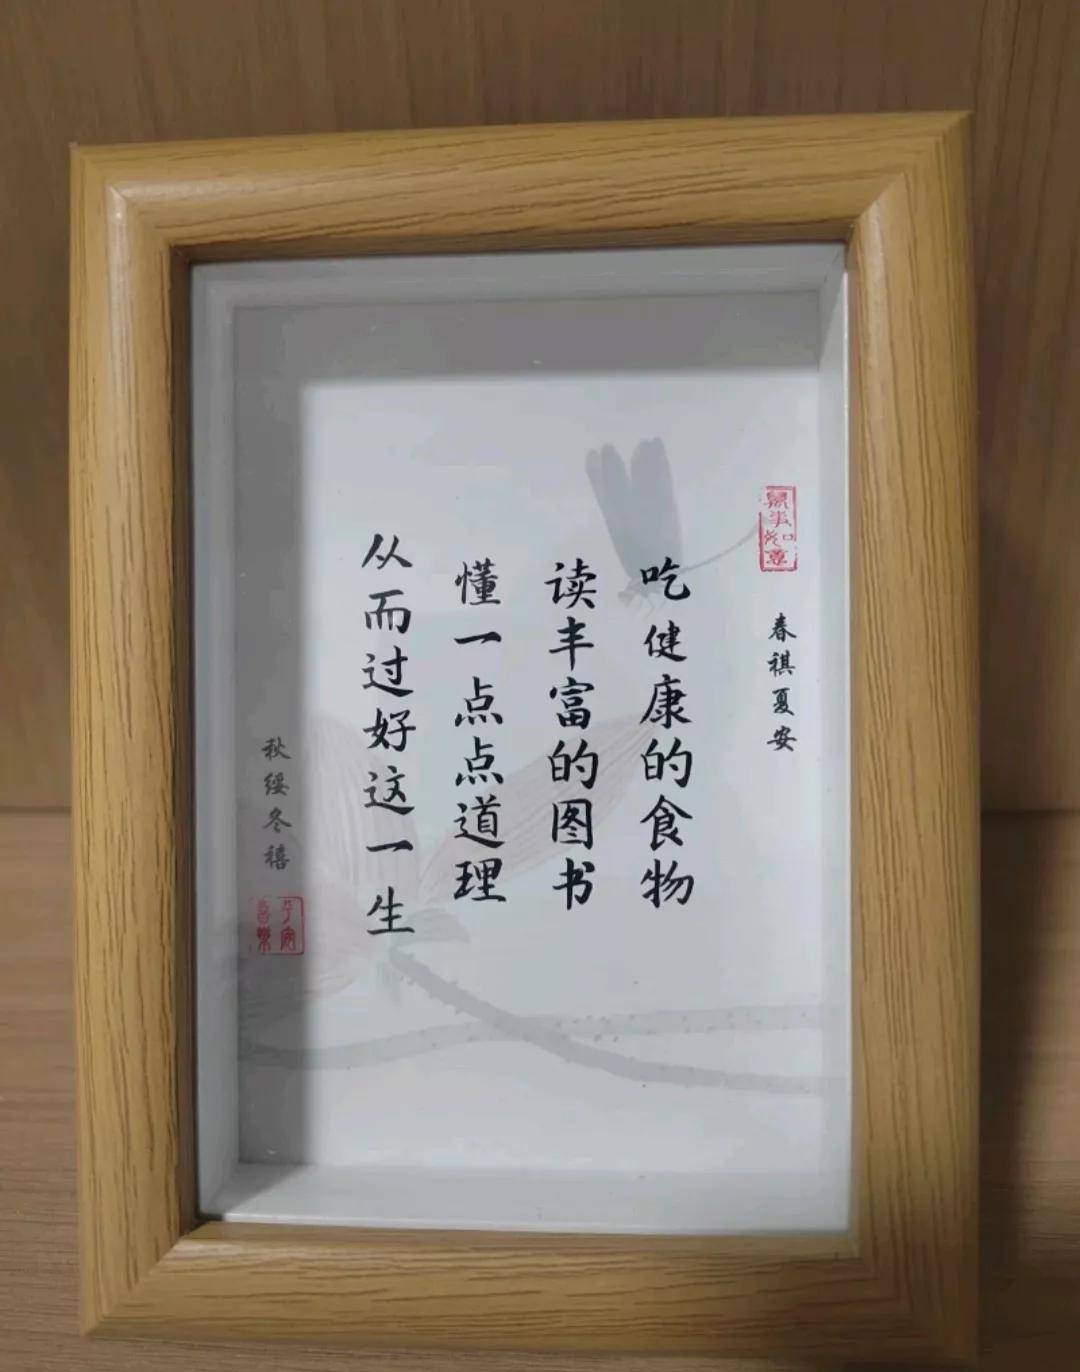 春祺夏安
吃健康的食物
读丰富的图书
懂一点点道理
从而过好这一生
秋绥冬禧
平安
喜乐